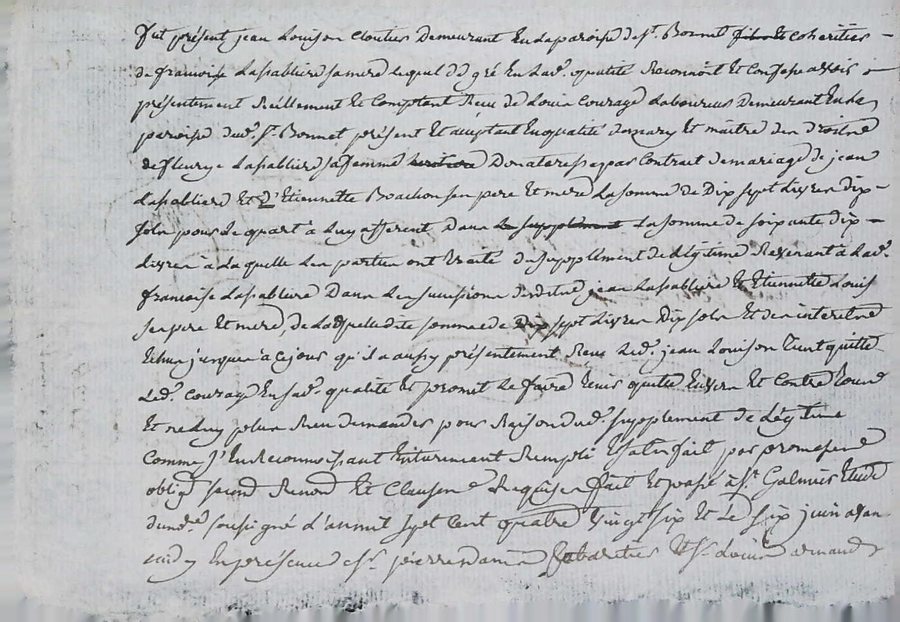 fut présent jean Louison Cloutier Demeurant En la paroisse de St. Bonnet fils et coheritier
de francoise Lasabliere sa mere lequel de gré En lad. qualité Reconnoit Et Confesse avoir
présentement Reellement Et Comptant Reçu de Louis Courage Laboureur Demeurant En la
paroisse dud. St. Bonnet, présent Et acceptant En qualité de mary Et maitre des droits
de fleurye Lasabliere sa femme Donataresse par Contrat de mariage de jean
Lasabliere Et d'Etiennette Bachon ses pere Et mere La somme de Dix sept Livres dix
sols pour le quart à Luy afferent, Dans le supplement La somme de soixante dix
Livres à La quelle Les parties ont traité du supplement de Légitime Revenant à Lad.
francoise Lasabliere Dans Les successions desdits jean Lasabliere Et Etiennette
ses pere Et mere, de La quelle dite somme de Dix sept Livres Dix sols Et des interets
Echus jusques à ce jour qu'il a aussy présentement Reçu Led. jean Louison tient quitte
Led. Courage En sad. qualité Et promet Le faire tenir quitte Envers Et Contre tous
Et ne Luy plus Rien demander pour Raison dud. supplement de Légitime
Comme s'En Reconnoissant Entierement Rempli Et satisfait par promesse
oblig. Renon. Et Clauses Requises fait Et passé à St. Galmier Etude
du no.re soussigné L'an mil sept Cent quatre vingt six Et Le six juin avan
midy En présence de Sr. pierre Et Sr. Louis arnaud